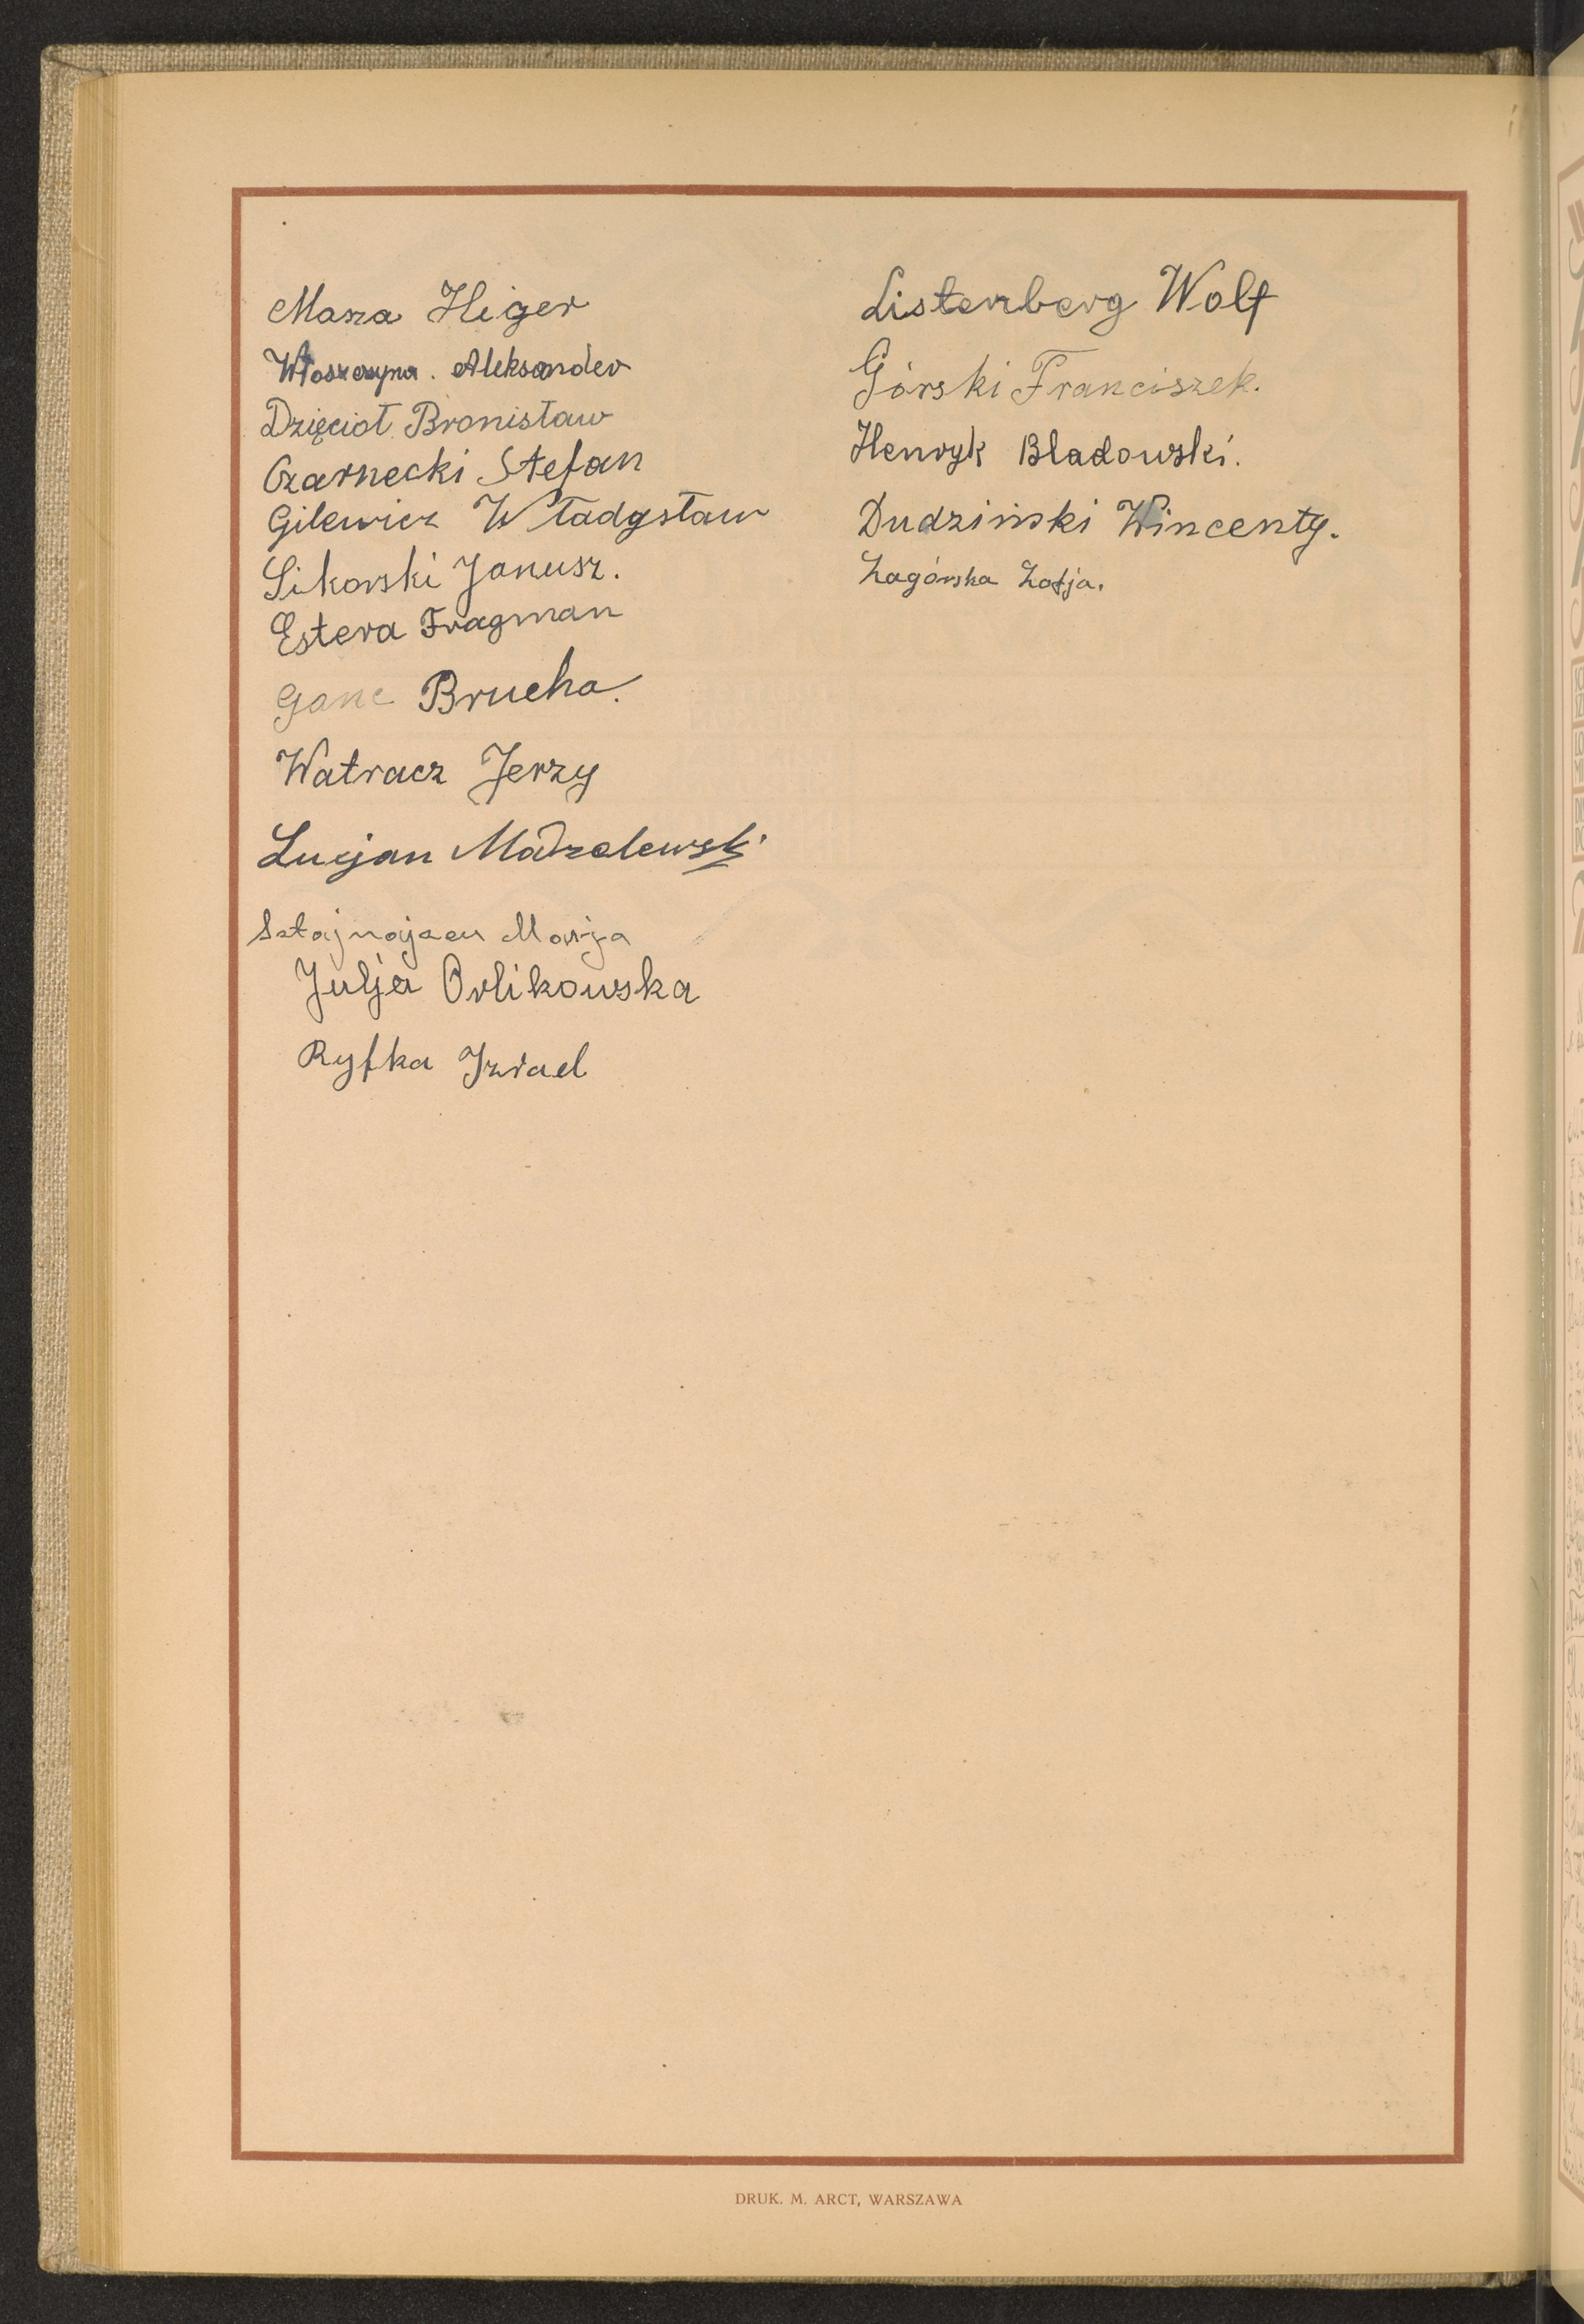 Masza Higer
Włoszczyna. Aleksander
Dzięcioł Bronisław
Czarnecki Stefan
Gilewicz Władysław
Sikorski Janusz.
Estera Fragman
Ganc Brucha.
Watracz Jerzy
Lucjan Modzelewski
Sztajnajzen Marja
Julja Orlikowska
Ryfka Izrael
Listenberg Wolf
Górski Franciszek.
Henryk Bladowski.
Dudziński Wincenty.
Zagórska Zofja.
DRUK. M. ARCT, WARSZAWA